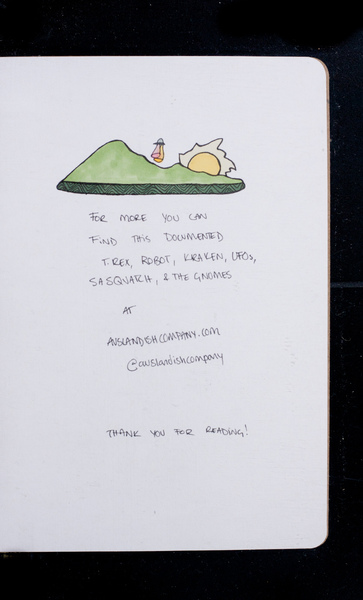 FOR MORE YOU CAN
FIND THIS DOCUMENTED
T.REX, ROBOT, KRAKEN, UFOs,
SASQUATCH, & THE GNOMES
AT
AUSLANDISHCOMPANY.COM
@auslandishcompany
THANK YOU FOR READING!